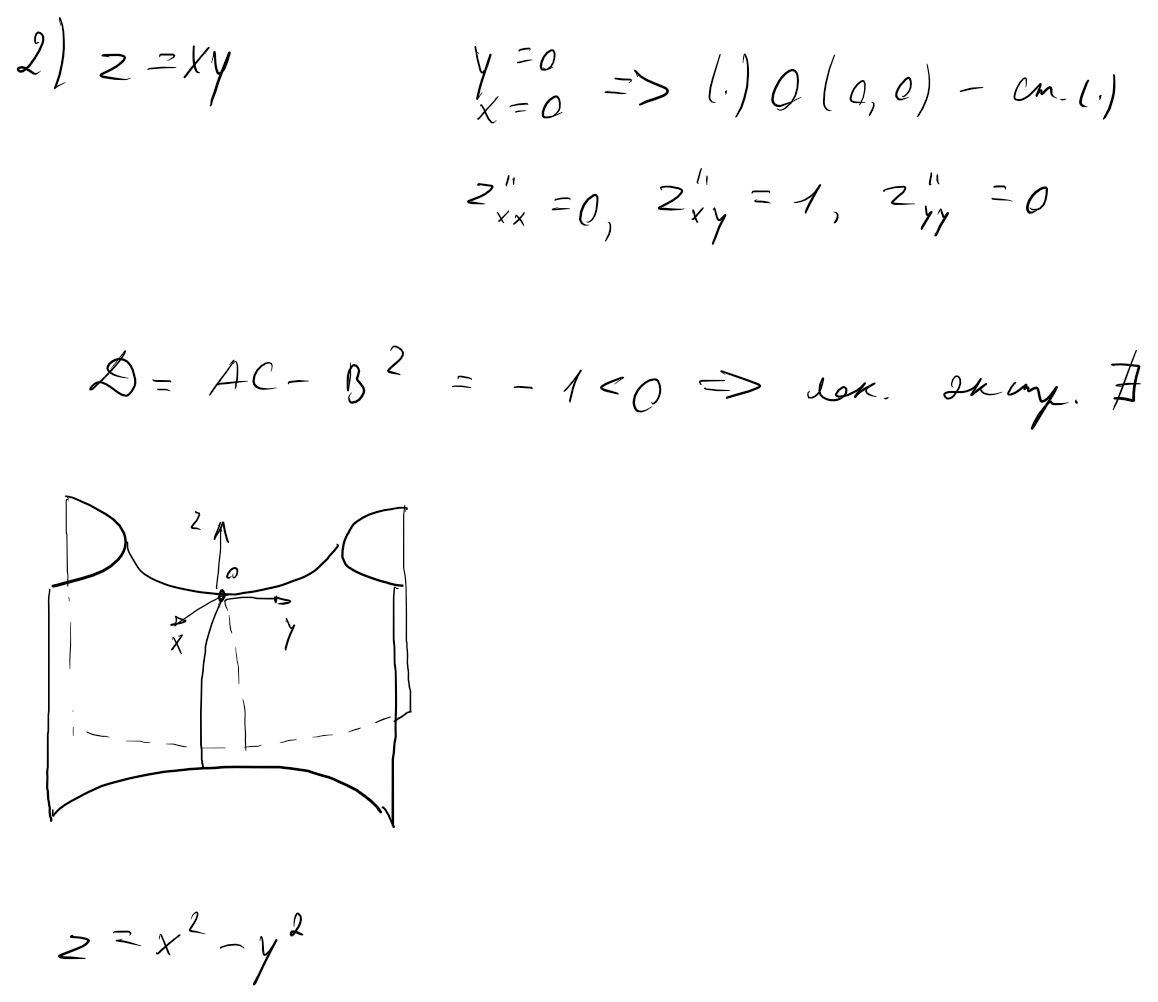 2) z = xy
y = 0
x = 0 => (.) O (0, 0) - ст. (.)
z''xx = 0, z''xy = 1, z''yy = 0
D = AC - B² = -1 < 0 => лок. экстр. ∄
z
O
x
y
z = x² - y²